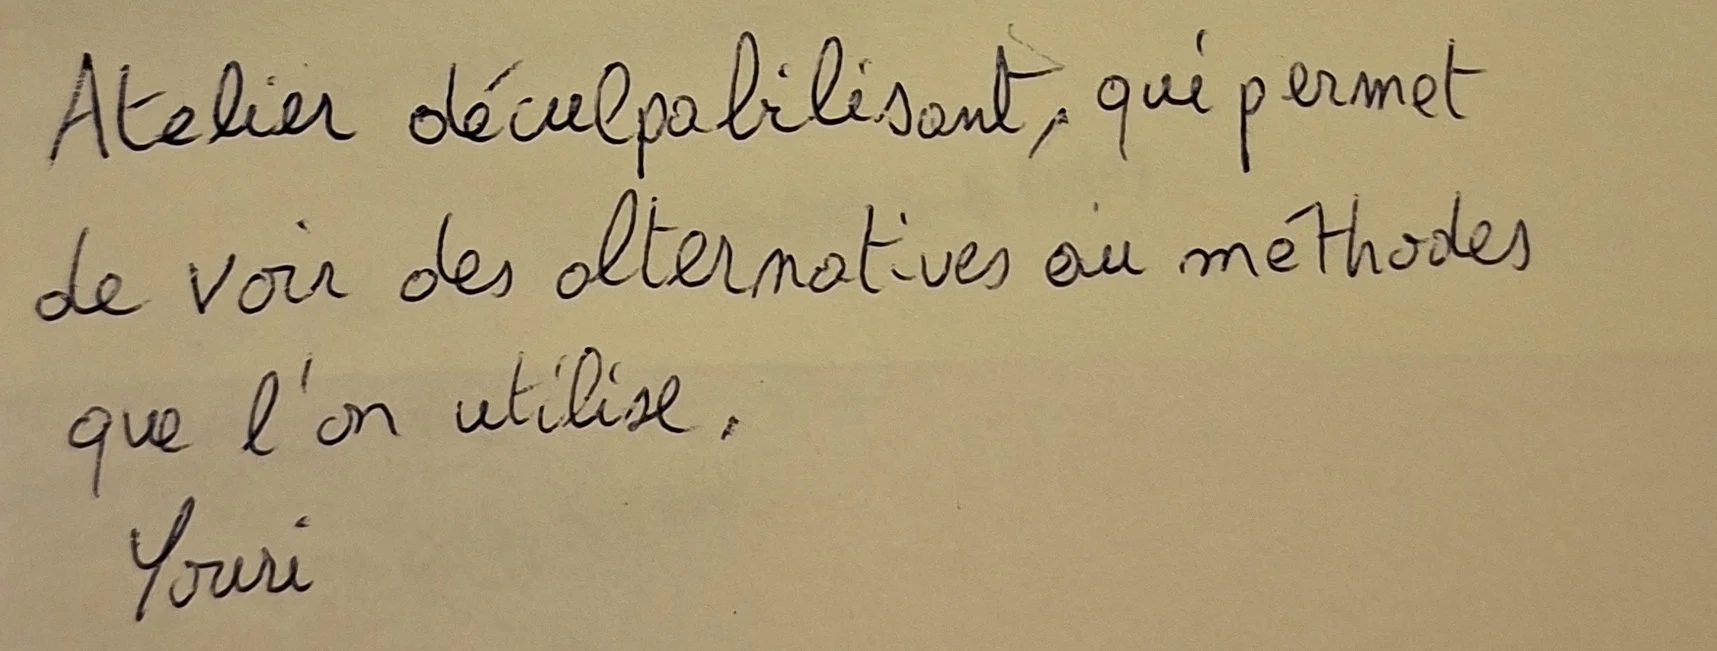 Atelier déculpabilisant, qui permet
de voir des alternatives au méthodes
que l'on utilise.
Youri